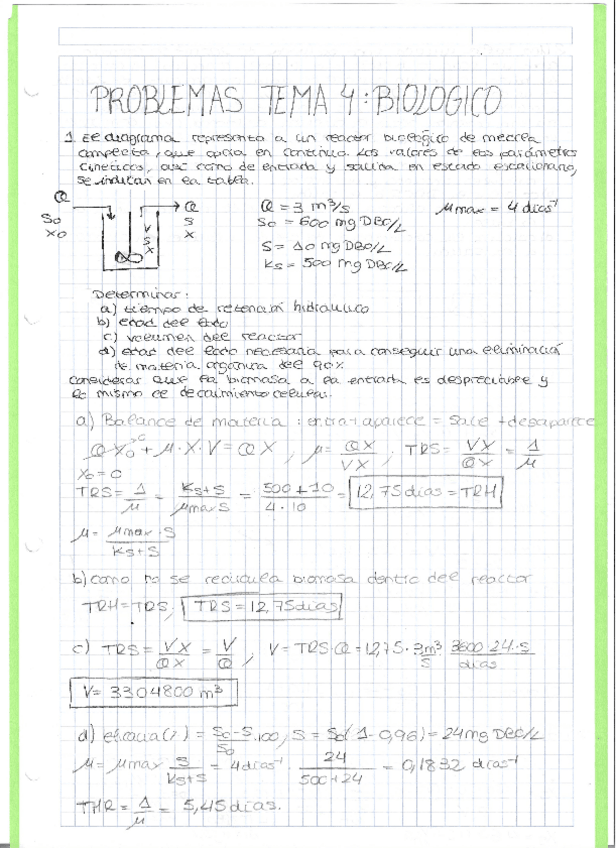 PROBLEMAS TEMA 4: BIOLOGICO
1. El diagrama representa a un reactor biológico de mezcla
completa, que opera en continuo. Los valores de los parámetros
cinéticos, así como de entrada y salida en estado estacionario,
se indican en la tabla.
Q → Q
S0 X0 V S X S X
Q = 3 m³/s μmax = 4 días⁻¹
S0 = 600 mg DBO/L
S = 10 mg DBO/L
Ks = 500 mg DBO/L
Determinar:
a) tiempo de retención hidráulico
b) edad del lodo
c) volumen del reactor
d) edad del lodo necesaria para conseguir una eliminación
de materia orgánica del 90%
Considerar que la biomasa a la entrada es despreciable y
lo mismo el decaimiento celular.
a) Balance de materia: entra + aparece = sale + desaparece
QX0 + μ·X·V = QX , μ = QX/VX , TRS = VX/QX = 1/μ
X0 = 0
TRS = 1/μ = Ks+S/μmax S = 500+10/4·10 = 12,75 días = TRH
μ = μmax·S/Ks+S
b) como no se recircula biomasa dentro del reactor
TRH = TRS, TRS = 12,75 días
c) TRS = VX/QX = V/Q , V = TRS·Q = 12,75·3m³/s·3600·24·s/días
V = 3304800 m³
d) eficacia(%) = S0-S/S0·100, S = S0(1-0,96) = 24 mg DBO/L
μ = μmax S/Ks+S = 4 días⁻¹·24/500+24 = 0,1832 días⁻¹
THR = 1/μ = 5,45 días.